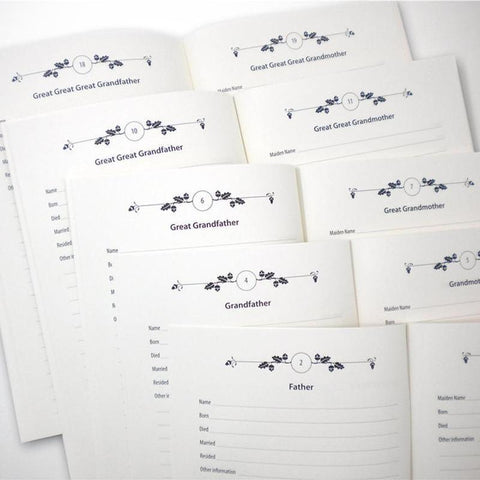 18
Great Great Great Grandfather
19
Great Great Great Grandmother
Maiden Name
10
Great Great Grandfather
Name
Born
Died
Married
Resided
Other
11
Great Great Grandmother
Maiden Name
6
Great Grandfather
Name
7
Great Grandmother
Maiden Name
4
Grandfather
Name
Born
Died
Married
Resided
Other
5
Maiden Name
Born
2
Father
Name
Born
Died
Married
Resided
Other information
Maiden Name
Born
Died
Married
Resided
Other information